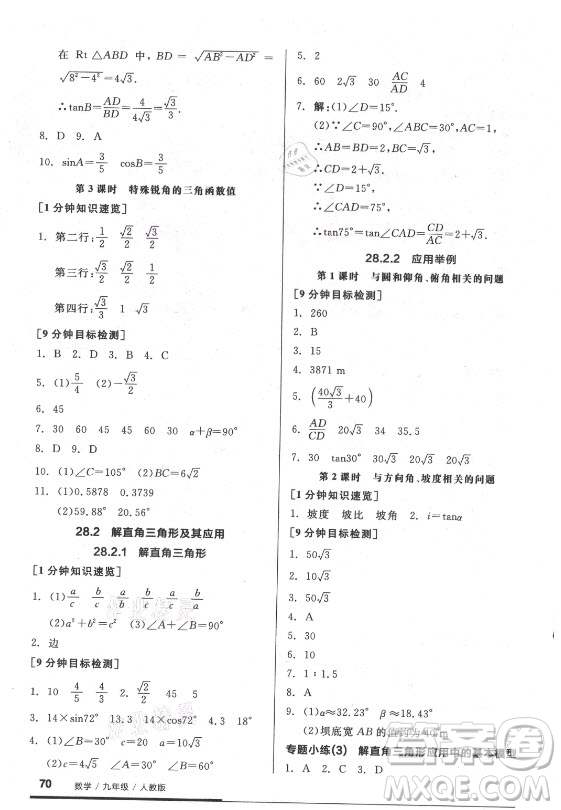 在 Rt △ABD 中，BD = √(AB²－AD²) =
√(8²－4²) = 4√3.
∴tanB = AD/BD = 4/(4√3) = √3/3.
8. D  9. A
10. sinA = 3/5  cosB = 3/5
第 3 课时  特殊锐角的三角函数值
[1 分钟知识速览]
1. 第二行：1/2  √2/2  √3/2
第三行：√3/2  √2/2  1/2
第四行：√3/3  1  √3
[9 分钟目标检测]
1. B  2. D  3. B  4. A
5. (1) 5/4  (2) －√3/2
6. 45
7. 30  60  45  45  60  30  α＋β＝90°
8. D  9. D
10. (1)∠C＝105°  (2)6√2
11. (1)0.5878  0.3739
(2)59.88°  20.56°
28.2  解直角三角形及其应用
28.2.1  解直角三角形
[1 分钟知识速览]
1. (1) a/c  b/c  a/b  b/c  a/c  b/a
(2)a²＋b²＝c²  (3)∠A＋∠B＝90°
2. 边
[9 分钟目标检测]
1. 10  4/5  3/4  2. √2/2  45  5√3
3. 14×sin72°  14×cos72°  4. D
70  数学／九年级／人教版
5. 2
6. 60  2√3  AC/AD  4
7. 解：(1)∠D＝15°.
(2)∵∠C＝90°，∠ABC＝30°，
∴AB＝BD＝2AC＝2.
∴CD＝2＋√3.
∴∠CAD＝75°.
∴tan75°＝tan∠CAD＝CD/AC＝2＋√3.
28.2.2  应用举例
第 1 课时  与圆和仰角、俯角相关的问题
[9 分钟目标检测]
1. 260
2. B
3. 15
4. 3871 m
5. (40√3/3＋40)
6. AD/CD  20√3  34  35.5
7. 30  tan30°  20√3
第 2 课时  与方向角、坡度相关的问题
[1 分钟知识速览]
1. 坡度  坡比  坡角  2. i＝tanα
[9 分钟目标检测]
1. 50√3
2. A
3. C
4. A
5. 50√3
6. 10
7. 1：1.5
8. B
9. (1)α≈32.23°  β≈18.43°
(2)坝底宽 AB 的值约为
专题小练(3)  解直角三角形应用中的基本模型
1. A  2. C  3. D